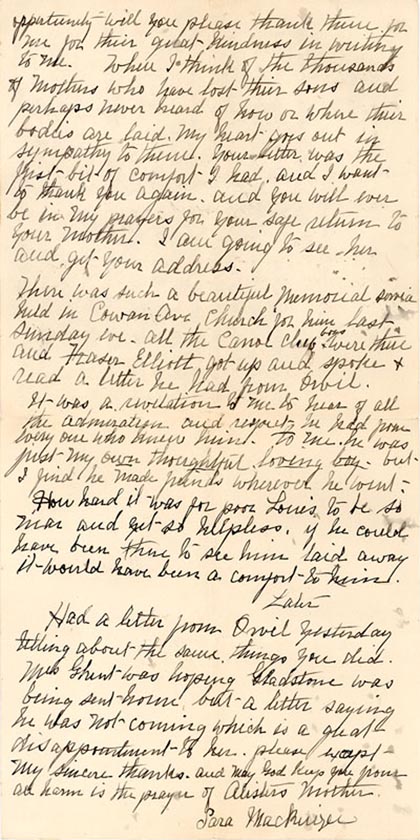 opportunity will you please thank them for
me for their great kindness in writing
to me. When I think of the thousands
of Mothers who have lost their sons and
perhaps never heard of how or where their
bodies are laid. My heart goes out in
sympathy to them. Your letter was the
first bit of comfort I had. and I want
to thank you again. and you will ever
be in my prayers for your safe return to
your Mother. I am going to see her
and get your address.
There was such a beautiful Memorial service
held in Cowan Ave Church for him last
Sunday eve. all the Canoe club boys were there
and Fraser Elliott got up and spoke &
read a letter he had from Orvil.
It was a revelation to me to hear of all
the admiration and respect he had from
every one who knew him. To me he was
just my own thoughtful loving boy. but
I find he made friends wherever he went.
How hard it was for poor Louis to be so
near and yet so helpless, if he could
have been there to see him laid away
it would have been a comfort to him.
Later
Had a letter from Orvil yesterday
telling about the same things you did.
Mrs was hoping Gladstone was
being sent home, but a letter saying
he was not coming which is a great
disappointment to her. please except
My sincere thanks. and may God keep you from
all harm is the prayer of Mother.
Sara